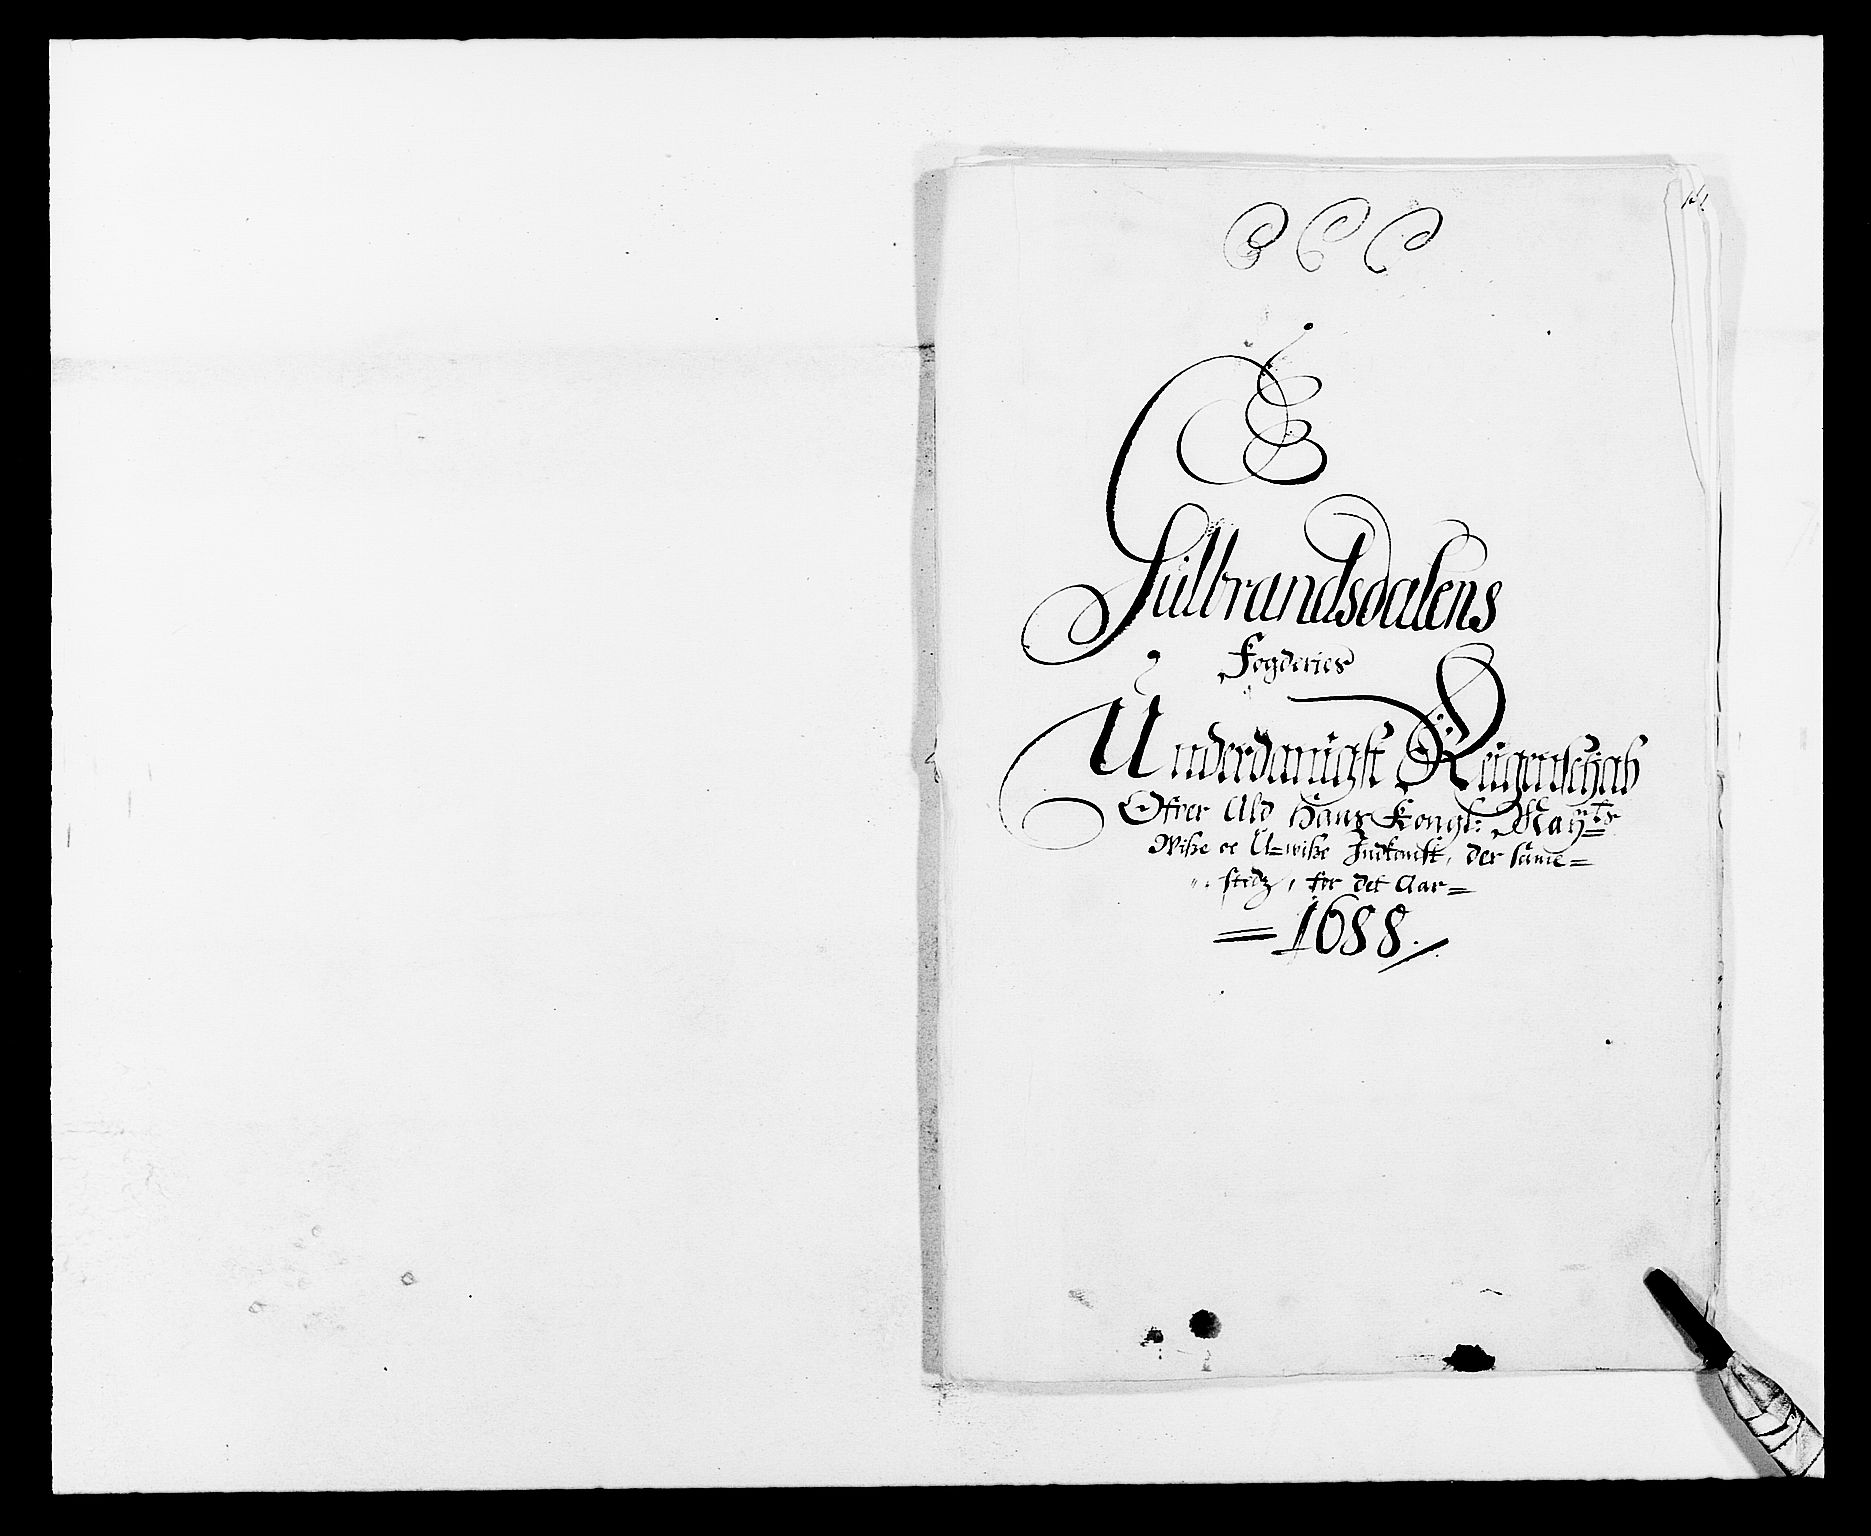 Gulbrandsdalens
Fogderies
Underdanigst Reigenschab
Ofver Ald Hans Kongl: May:ts
Wisse oc U=wisse Indkomst, der same=
stedz, for det Aar=
=1688./